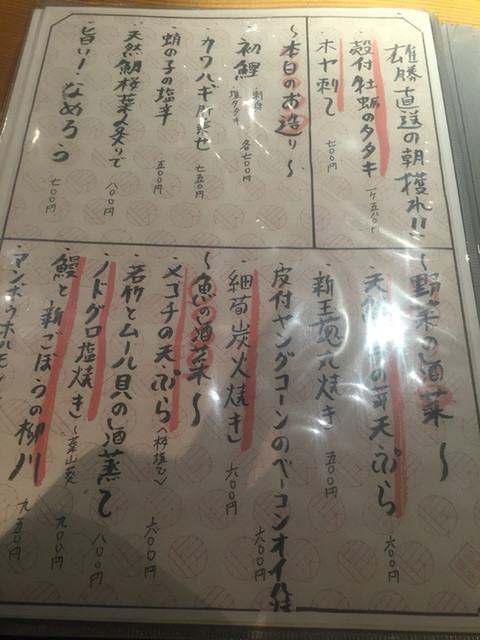 雄勝直送の朝獲れ!!
殻付牡蛎のタタキ 一ケ五八〇円
ホヤ刺し 七〇〇円
〜本日のお造り〜
初鰹 刺身 塩タタキ 各七〇〇円
カワハギ肝乗せ 七五〇円
蛸の子の塩辛 五〇〇円
天然鯛桜葉炙りで 八〇〇円
旨い!なめろう 七〇〇円
〜野菜の酒菜〜
天然 の芽天ぷら 六〇〇円
新玉葱丸焼き 五〇〇円
皮付ヤングコーンのベーコンオイル 六〇〇円
細筍炭火焼き 六〇〇円
〜魚の酒菜〜
メゴチの天ぷら 六〇〇円
若竹とムール貝の酒蒸し 八〇〇円
ノドグロ塩焼き〜葉山葵 九〇〇円
鰻と新ごぼうの柳川 九五〇円
マンボウホルモン